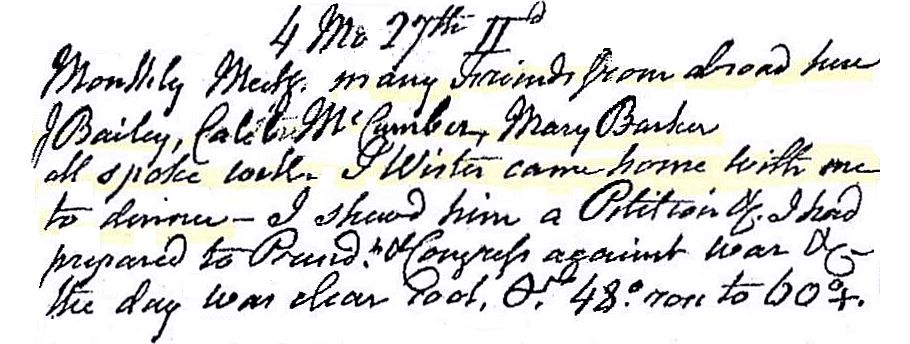 4 Mo 27th IId
Monthly Meetg. many Friends from abroad here
J Bailey, Caleb McCumber, Mary Barker
all spoke well - J Wister came home with me
to dinner - I shewd him a Petition &c. I had
prepared to Presdt. & Congress against war &c -
the day was clear cool, 48° rose to 60°+.